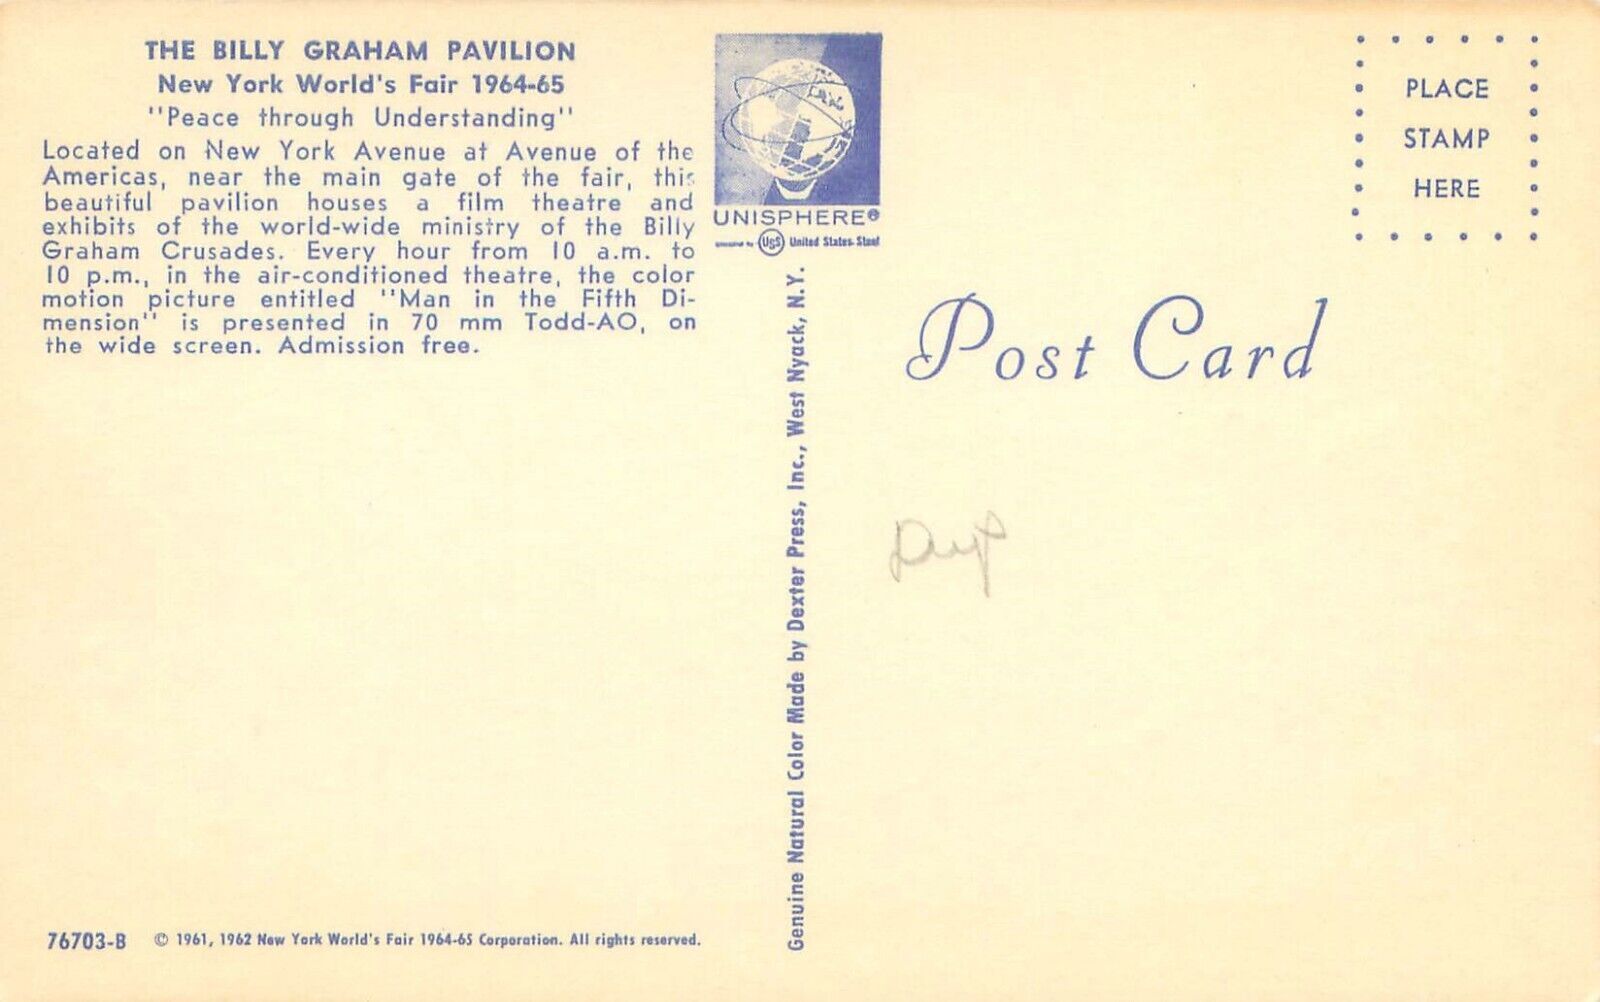 THE BILLY GRAHAM PAVILION
New York World's Fair 1964-65
"Peace through Understanding"
Located on New York Avenue at Avenue of the
Americas, near the main gate of the fair, this
beautiful pavilion houses a film theatre and
exhibits of the world-wide ministry of the Billy
Graham Crusades. Every hour from 10 a.m. to
10 p.m., in the air-conditioned theatre, the color
motion picture entitled "Man in the Fifth Di-
mension" is presented in 70 mm Todd-AO, on
the wide screen. Admission free.
76703-B © 1961, 1962 New York World's Fair 1964-65 Corporation. All rights reserved.
UNISPHERE®
USS United States Steel
Genuine Natural Color Made by Dexter Press, Inc., West Nyack, N.Y.
PLACE
STAMP
HERE
Post Card